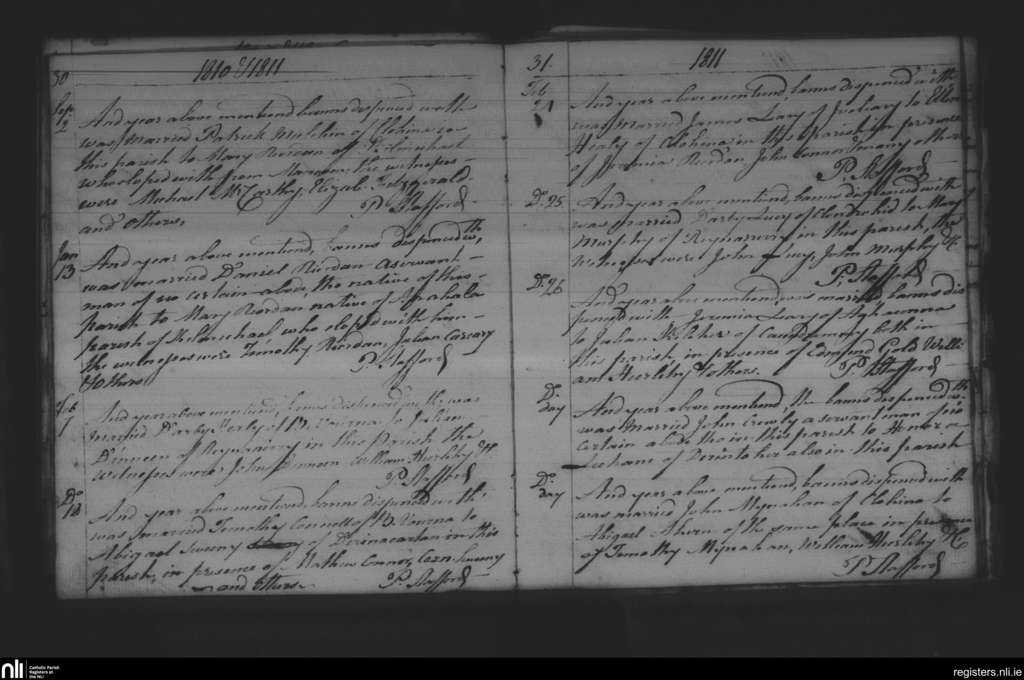 30
1810 & 1811
Sep.
2
And year above mentiend banns dispencd with
was Married Patrick of Clohina in
this parish to Mary Riordan of
who eloped with from the witnesses
were Michael McCarthy, Elizab. Fitzgerald
and others.
P. Stafford
Jan
13
And year above mentiend, banns dispenced with,
was married Daniel Riordan a servant
man of no certain abode, the native of this
parish to Mary Riordan native of
parish of Kilmichael who eloped with him
the witnesses were Timothy Riordan, Julian Casary
& Others
P. Stafford
Feb
7
And year above mentiend, banns dispenced with was
married Darby of to Julian
Dinneen of Reynasirry in this Parish the
witnesses were John Dinneen William Hurlihy &c
P. Stafford
Do.
12
And year above mentiend, banns dispenced with
was married Timothy Connell of to
Abigael Sweeny of Derinacartan in this
parish, in presence of Mathew Connor, Corn. Sweeny
and others.
P. Stafford
31
1811
Feb
24
And year above mentiend, banns dispenced with
was Married James Leary of to Ellen
Healy of Clohina in this parish in presence
of Jeremia Riordan John Connor & many others
P. Stafford
Do. 25
And year above mentiend, banns dispenced with
was married Darby Lucy of to Mary
Murphy of Reynasirry in this parish, the
Witnesses were John Lucy, John Murphy &c
P. Stafford
Do. 26
And year above mentiend was married, banns dis
penced with Jeremia Leary of
to Julian Kelcher of both in
this parish, in presence of Edmond Willi
am Hurlihy & others.
P. Stafford
Do.
day
And year above mentiend, the banns dispenced with
was Married John Crowly a servant man of no
certain abode tho in this parish to Honor
of also in this parish
Do.
day
And year above mentiend, banns dispenced with
was married John Mynahan of Clohina to
Abigael Ahern of the same place in presence
of Timothy Mynahan, William Hurlihy &c
P. Stafford
nli
Catholic Parish
Registers at
the NLI
registers.nli.ie